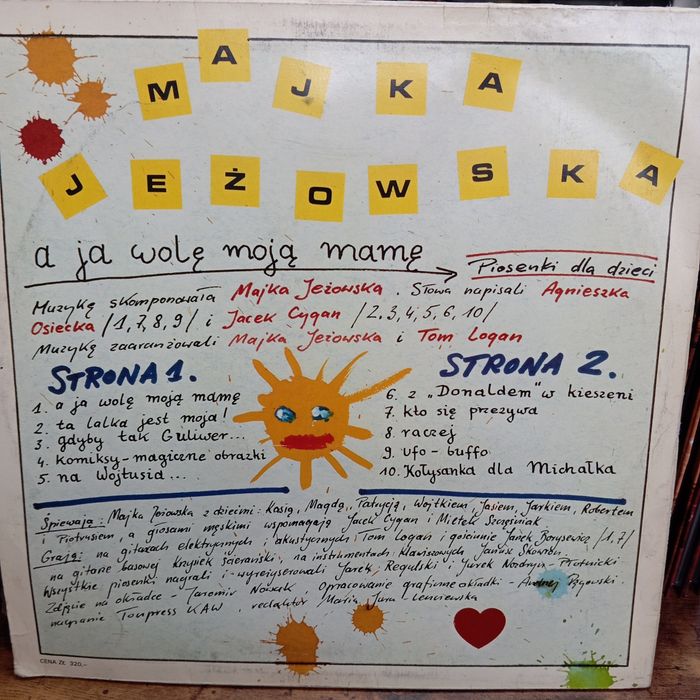 MAJKA
JEŻOWSKA
a ja wolę moją mamę
Piosenki dla dzieci
Muzykę skomponowała Majka Jeżowska. Słowa napisali Agnieszka
Osiecka /1,7,8,9/ i Jacek Cygan /2,3,4,5,6,10/
Muzykę zaaranżowali Majka Jeżowska i Tom Logan
STRONA 1.
1. a ja wolę moją mamę
2. ta lalka jest moja!
3. gdyby tak Guliwer...
4. komiksy-magiczne obrazki
5. na Wojtusia...
STRONA 2.
6. z „Donaldem" w kieszeni
7. kto się przezywa
8. raczej
9. ufo-buffo
10. Kołysanka dla Michałka
Śpiewają: Majka Jeżowska z dziećmi: Kasią, Magdą, Patrycją, Wojtkiem, Jasiem, Jarkiem, Robertem
i Piotrusiem, a głosami męskimi wspomagają Jacek Cygan i Mietek Szcześniak
Grają: na gitarach elektrycznych i akustycznych Tom Logan i gościnnie Jarek /1,7/
na gitarze basowej Krzysiek Ścierański, na instrumentach klawiszowych Janusz Skowron
Wszystkie piosenki nagrali i wyreżyserowali Jarek Regulski i Jurek Płotnicki
Zdjęcie na okładce - Jaromir Nowak Opracowanie graficzne okładki - Andrzej
nagranie Tonpress KAW, redaktor Maria
CENA ZŁ 320,-